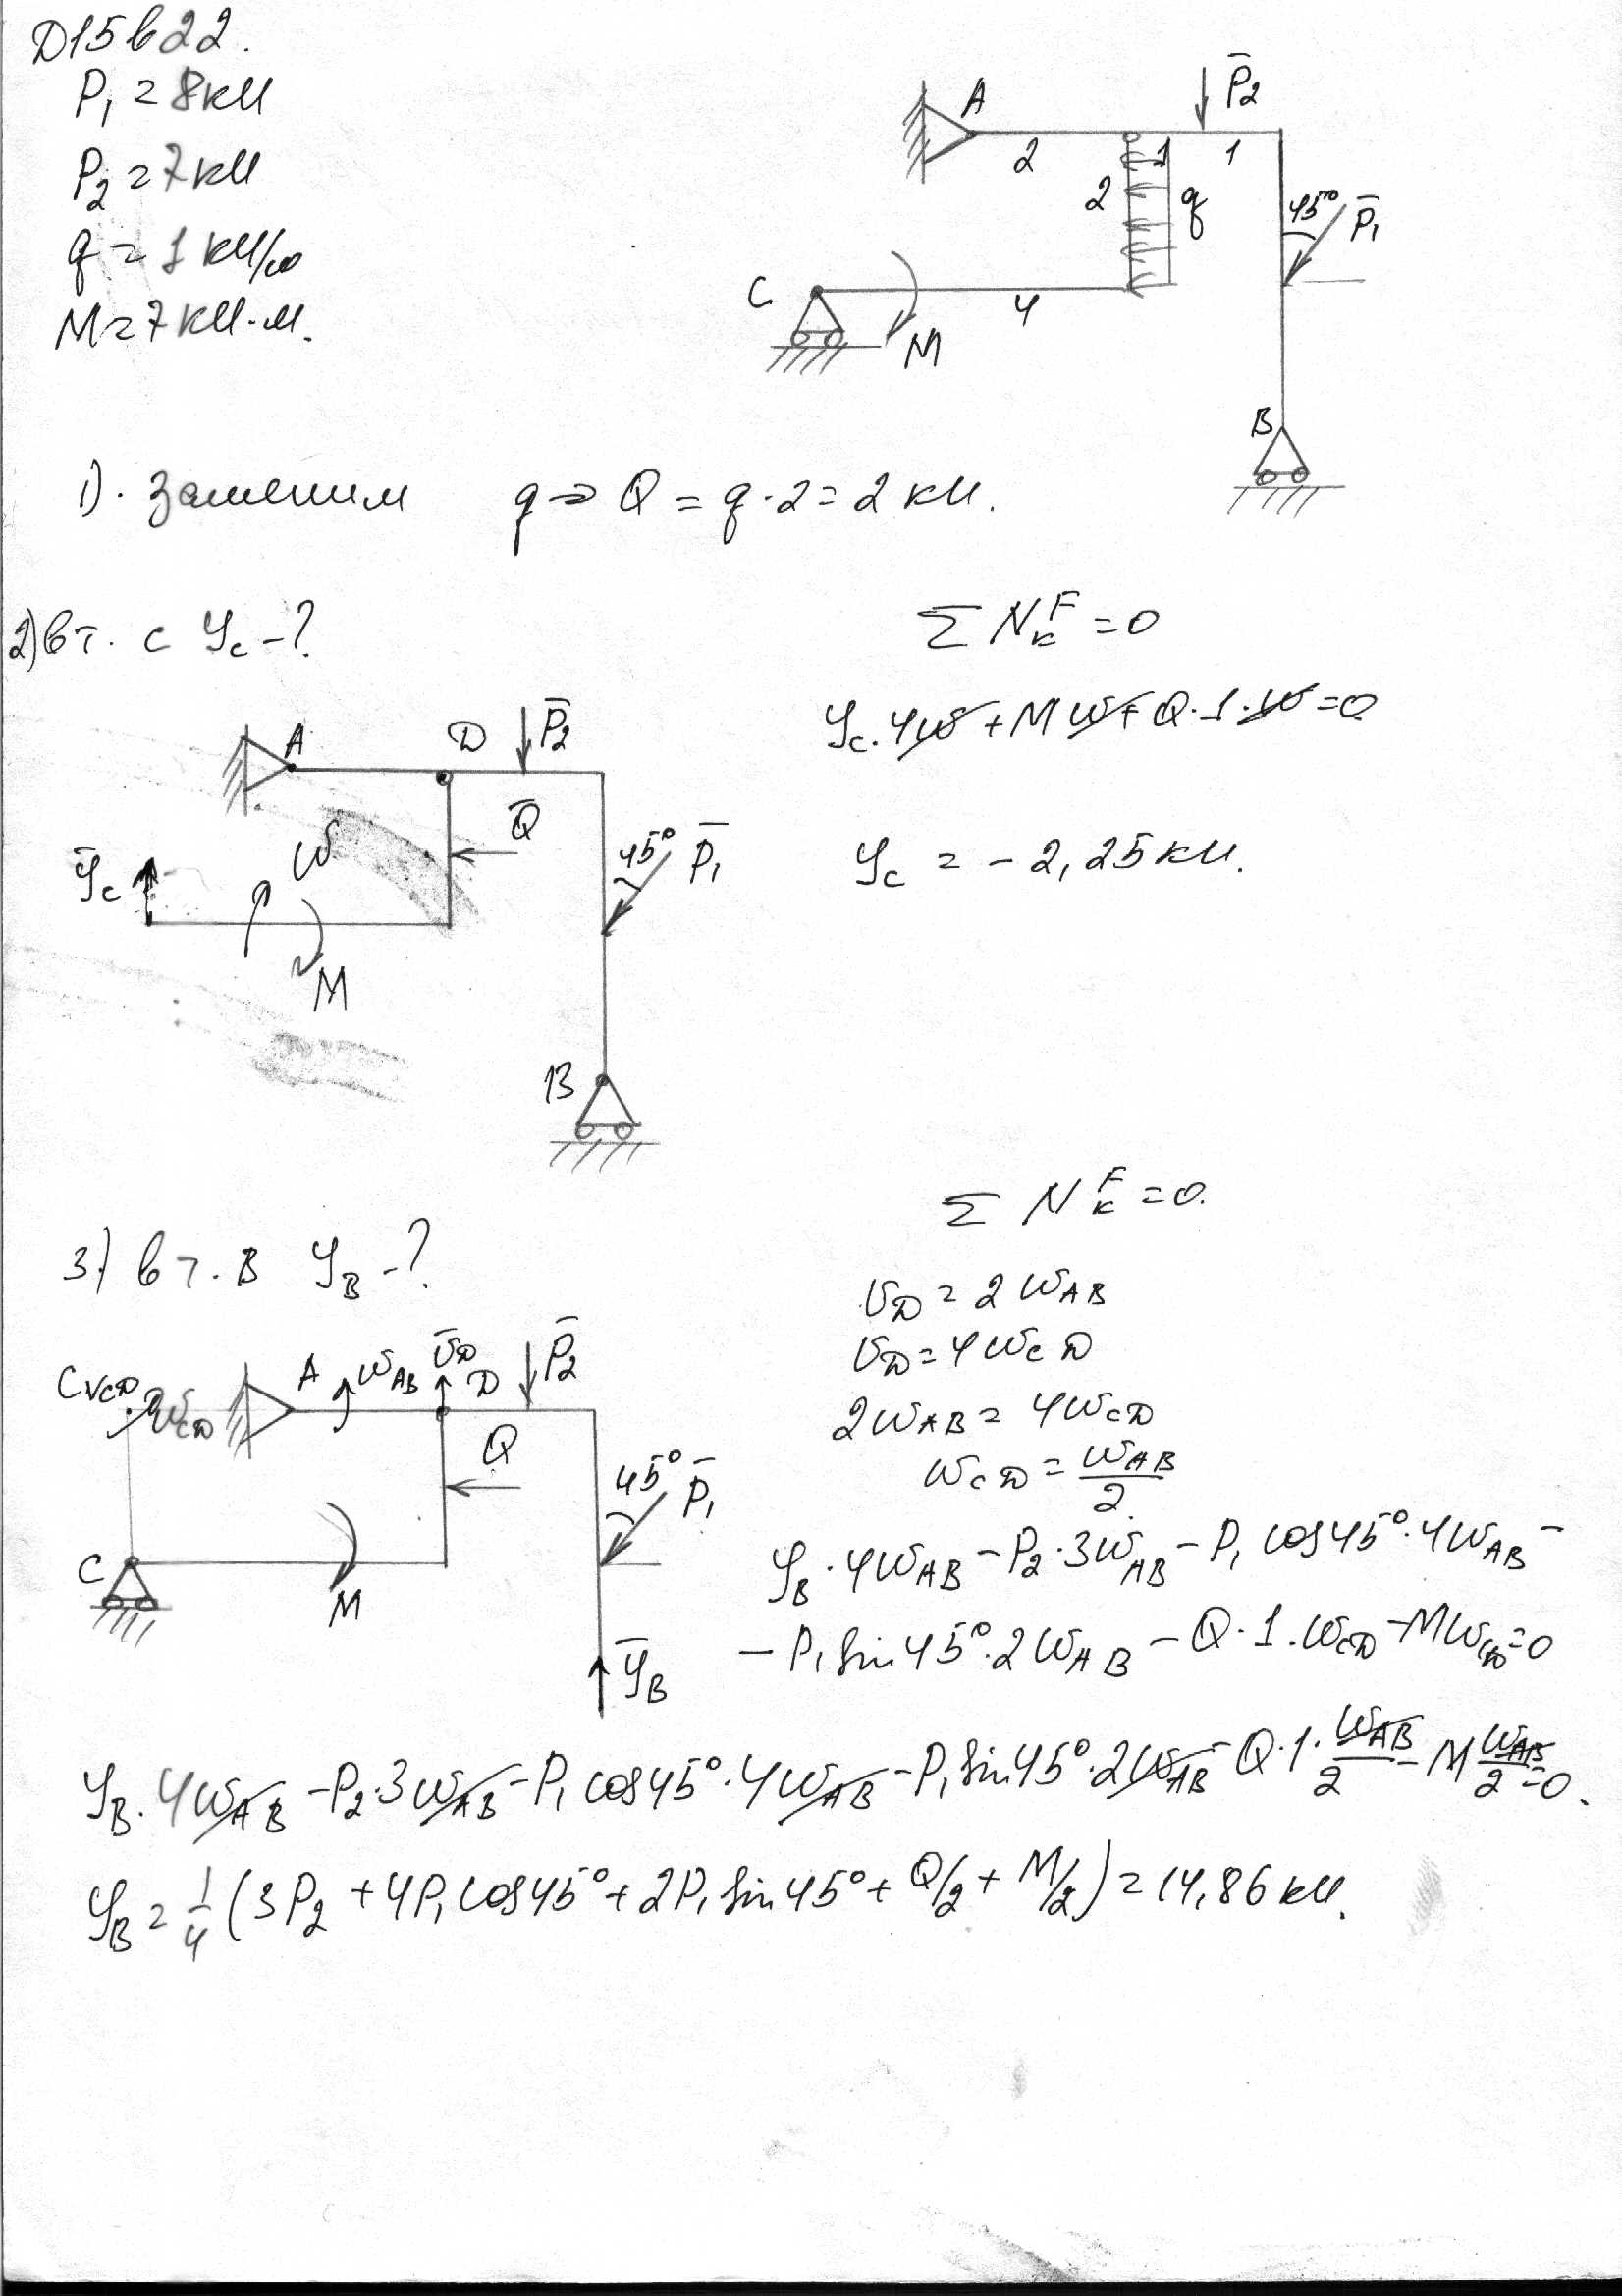 Д15 в22.
P₁ = 8 кН
P₂ = 7 кН
q = 1 кН/м
M = 7 кН·м.
A
P̄₂
2
1
1
2
q
45°
P̄₁
C
4
M
B
1). Заменим q → Q = q·2 = 2 кН.
2) в т. C Y_C - ?
Σ N_K^F = 0
Y_C·4ω + Mω + Q·1·ω = 0
Y_C = -2,25 кН.
A
D
P̄₂
Q̄
ω
Ȳ_C
45°
P̄₁
M
B
3) в т. B Y_B - ?
Σ N_K^F = 0.
V_D = 2ω_AB
V_D = 4ω_CD
2ω_AB = 4ω_CD
ω_CD = ω_AB/2
C_VCD
ω_CD
A
ω_AB
V̄_D
D
P̄₂
Q
45°
P̄₁
C
M
Ȳ_B
Y_B·4ω_AB - P₂·3ω_AB - P₁cos45°·4ω_AB -
- P₁sin45°·2ω_AB - Q·1·ω_CD - Mω_CD = 0
Y_B·4ω_AB - P₂·3ω_AB - P₁cos45°·4ω_AB - P₁sin45°·2ω_AB - Q·1·ω_AB/2 - M ω_AB/2 = 0.
Y_B = 1/4 (3P₂ + 4P₁cos45° + 2P₁sin45° + Q/2 + M/2) = 14,86 кН.